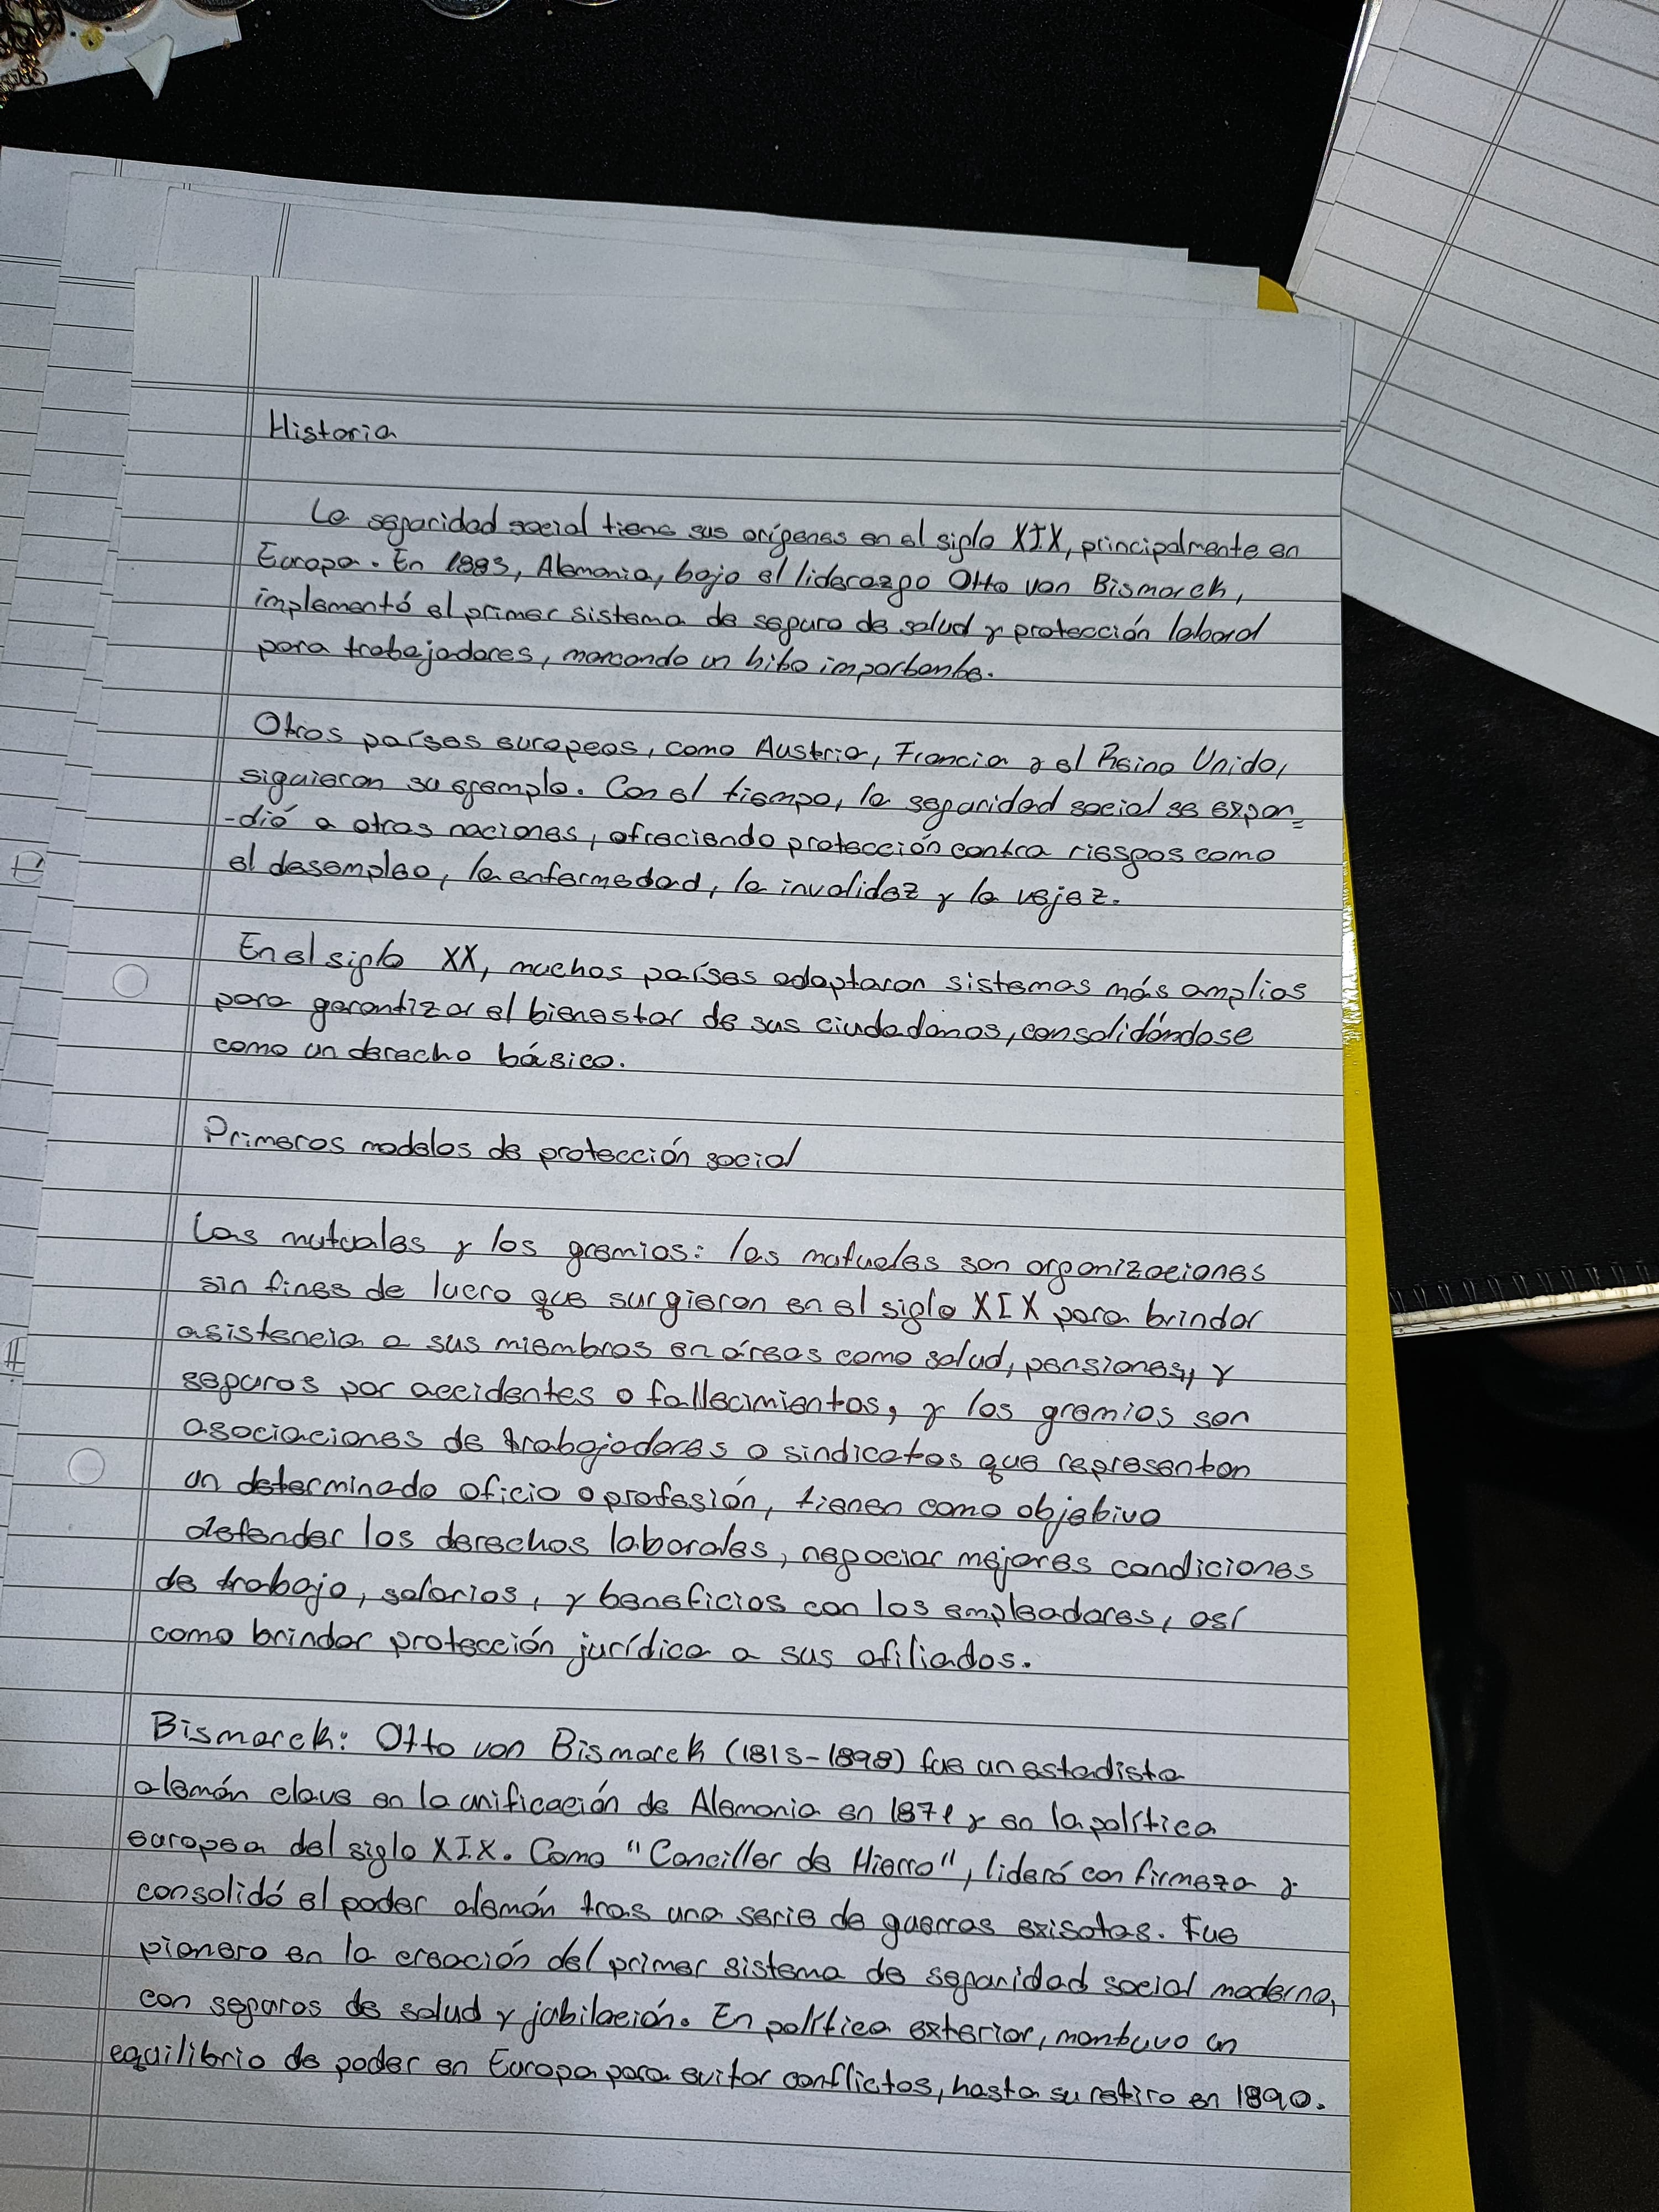 Historia
La seguridad social tiene sus orígenes en el siglo XIX, principalmente en
Europa. En 1883, Alemania, bajo el liderazgo Otto von Bismarck,
implementó el primer sistema de seguro de salud y protección laboral
para trabajadores, marcando un hito importante.
Otros países europeos, como Austria, Francia y el Reino Unido,
siguieron su ejemplo. Con el tiempo, la seguridad social se expan=
-dió a otras naciones, ofreciendo protección contra riesgos como
el desempleo, la enfermedad, la invalidez y la vejez.
En el siglo XX, muchos países adoptaron sistemas más amplios
para garantizar el bienestar de sus ciudadanos, consolidándose
como un derecho básico.
Primeros modelos de protección social
Las mutuales y los gremios: las mutuales son organizaciones
sin fines de lucro que surgieron en el siglo XIX para brindar
asistencia a sus miembros en áreas como salud, pensiones, y
seguros por accidentes o fallecimientos, y los gremios son
asociaciones de trabajadores o sindicatos que representan
un determinado oficio o profesión, tienen como objetivo
defender los derechos laborales, negociar mejores condiciones
de trabajo, salarios, y beneficios con los empleadores, así
como brindar protección jurídica a sus afiliados.
Bismarck: Otto von Bismarck (1815-1898) fue un estadista
alemán clave en la unificación de Alemania en 1871 y en la política
europea del siglo XIX. Como "Canciller de Hierro", lideró con firmeza y
consolidó el poder alemán tras una serie de guerras exisotas. Fue
pionero en la creación del primer sistema de seguridad social moderno,
con seguros de salud y jubilación. En política exterior, mantuvo un
equilibrio de poder en Europa para evitar conflictos, hasta su retiro en 1890.